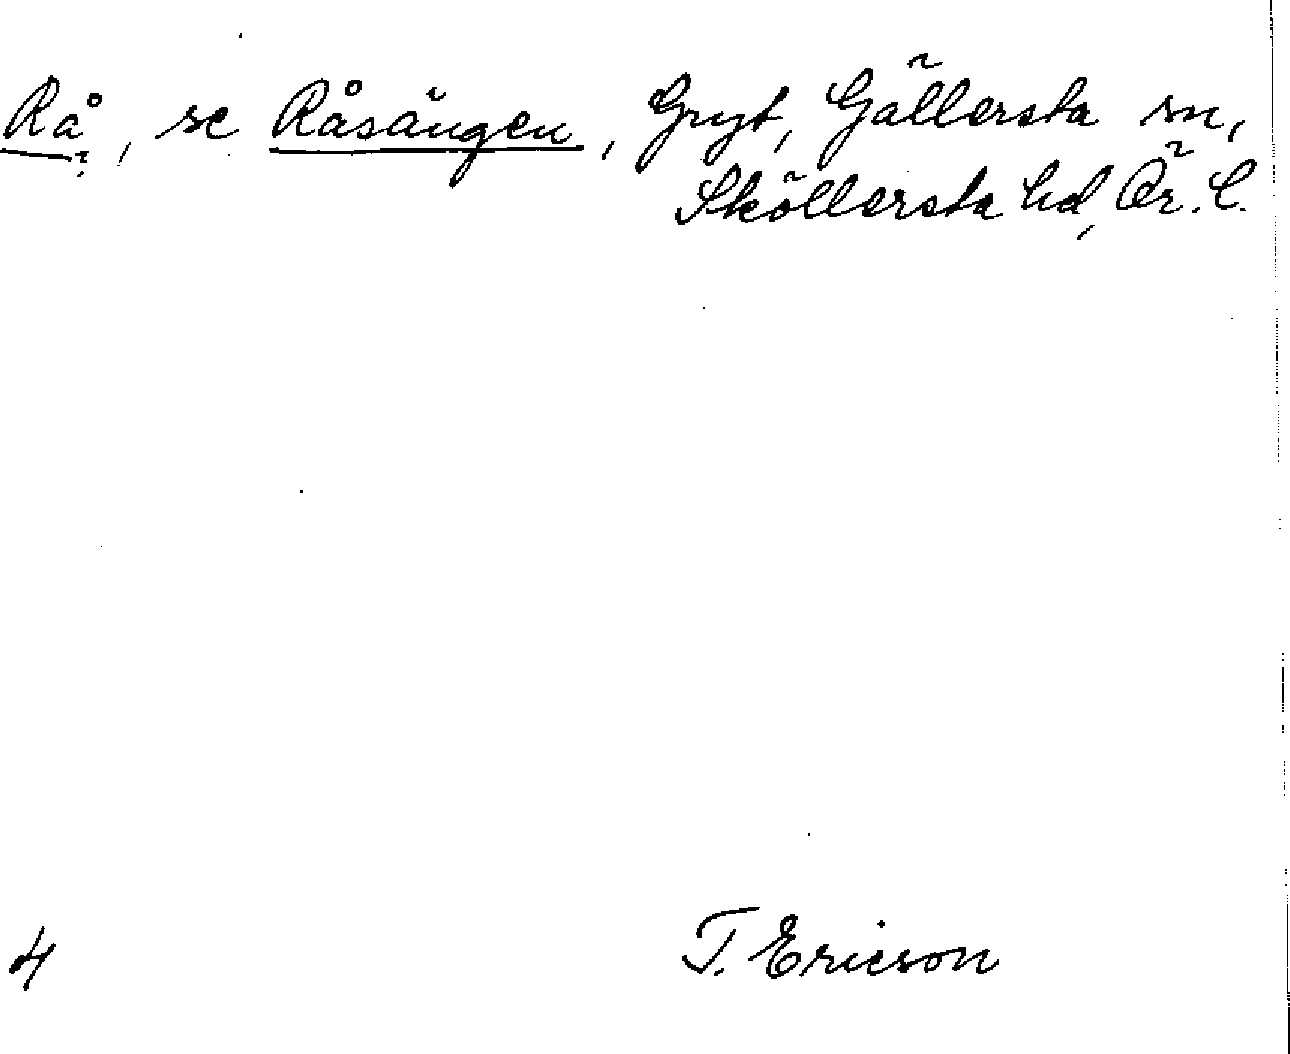 Rå, se Råsängen, Gryt, Gällersta sn,
Sköllersta hd, Ör. l.
4
T. Ericson